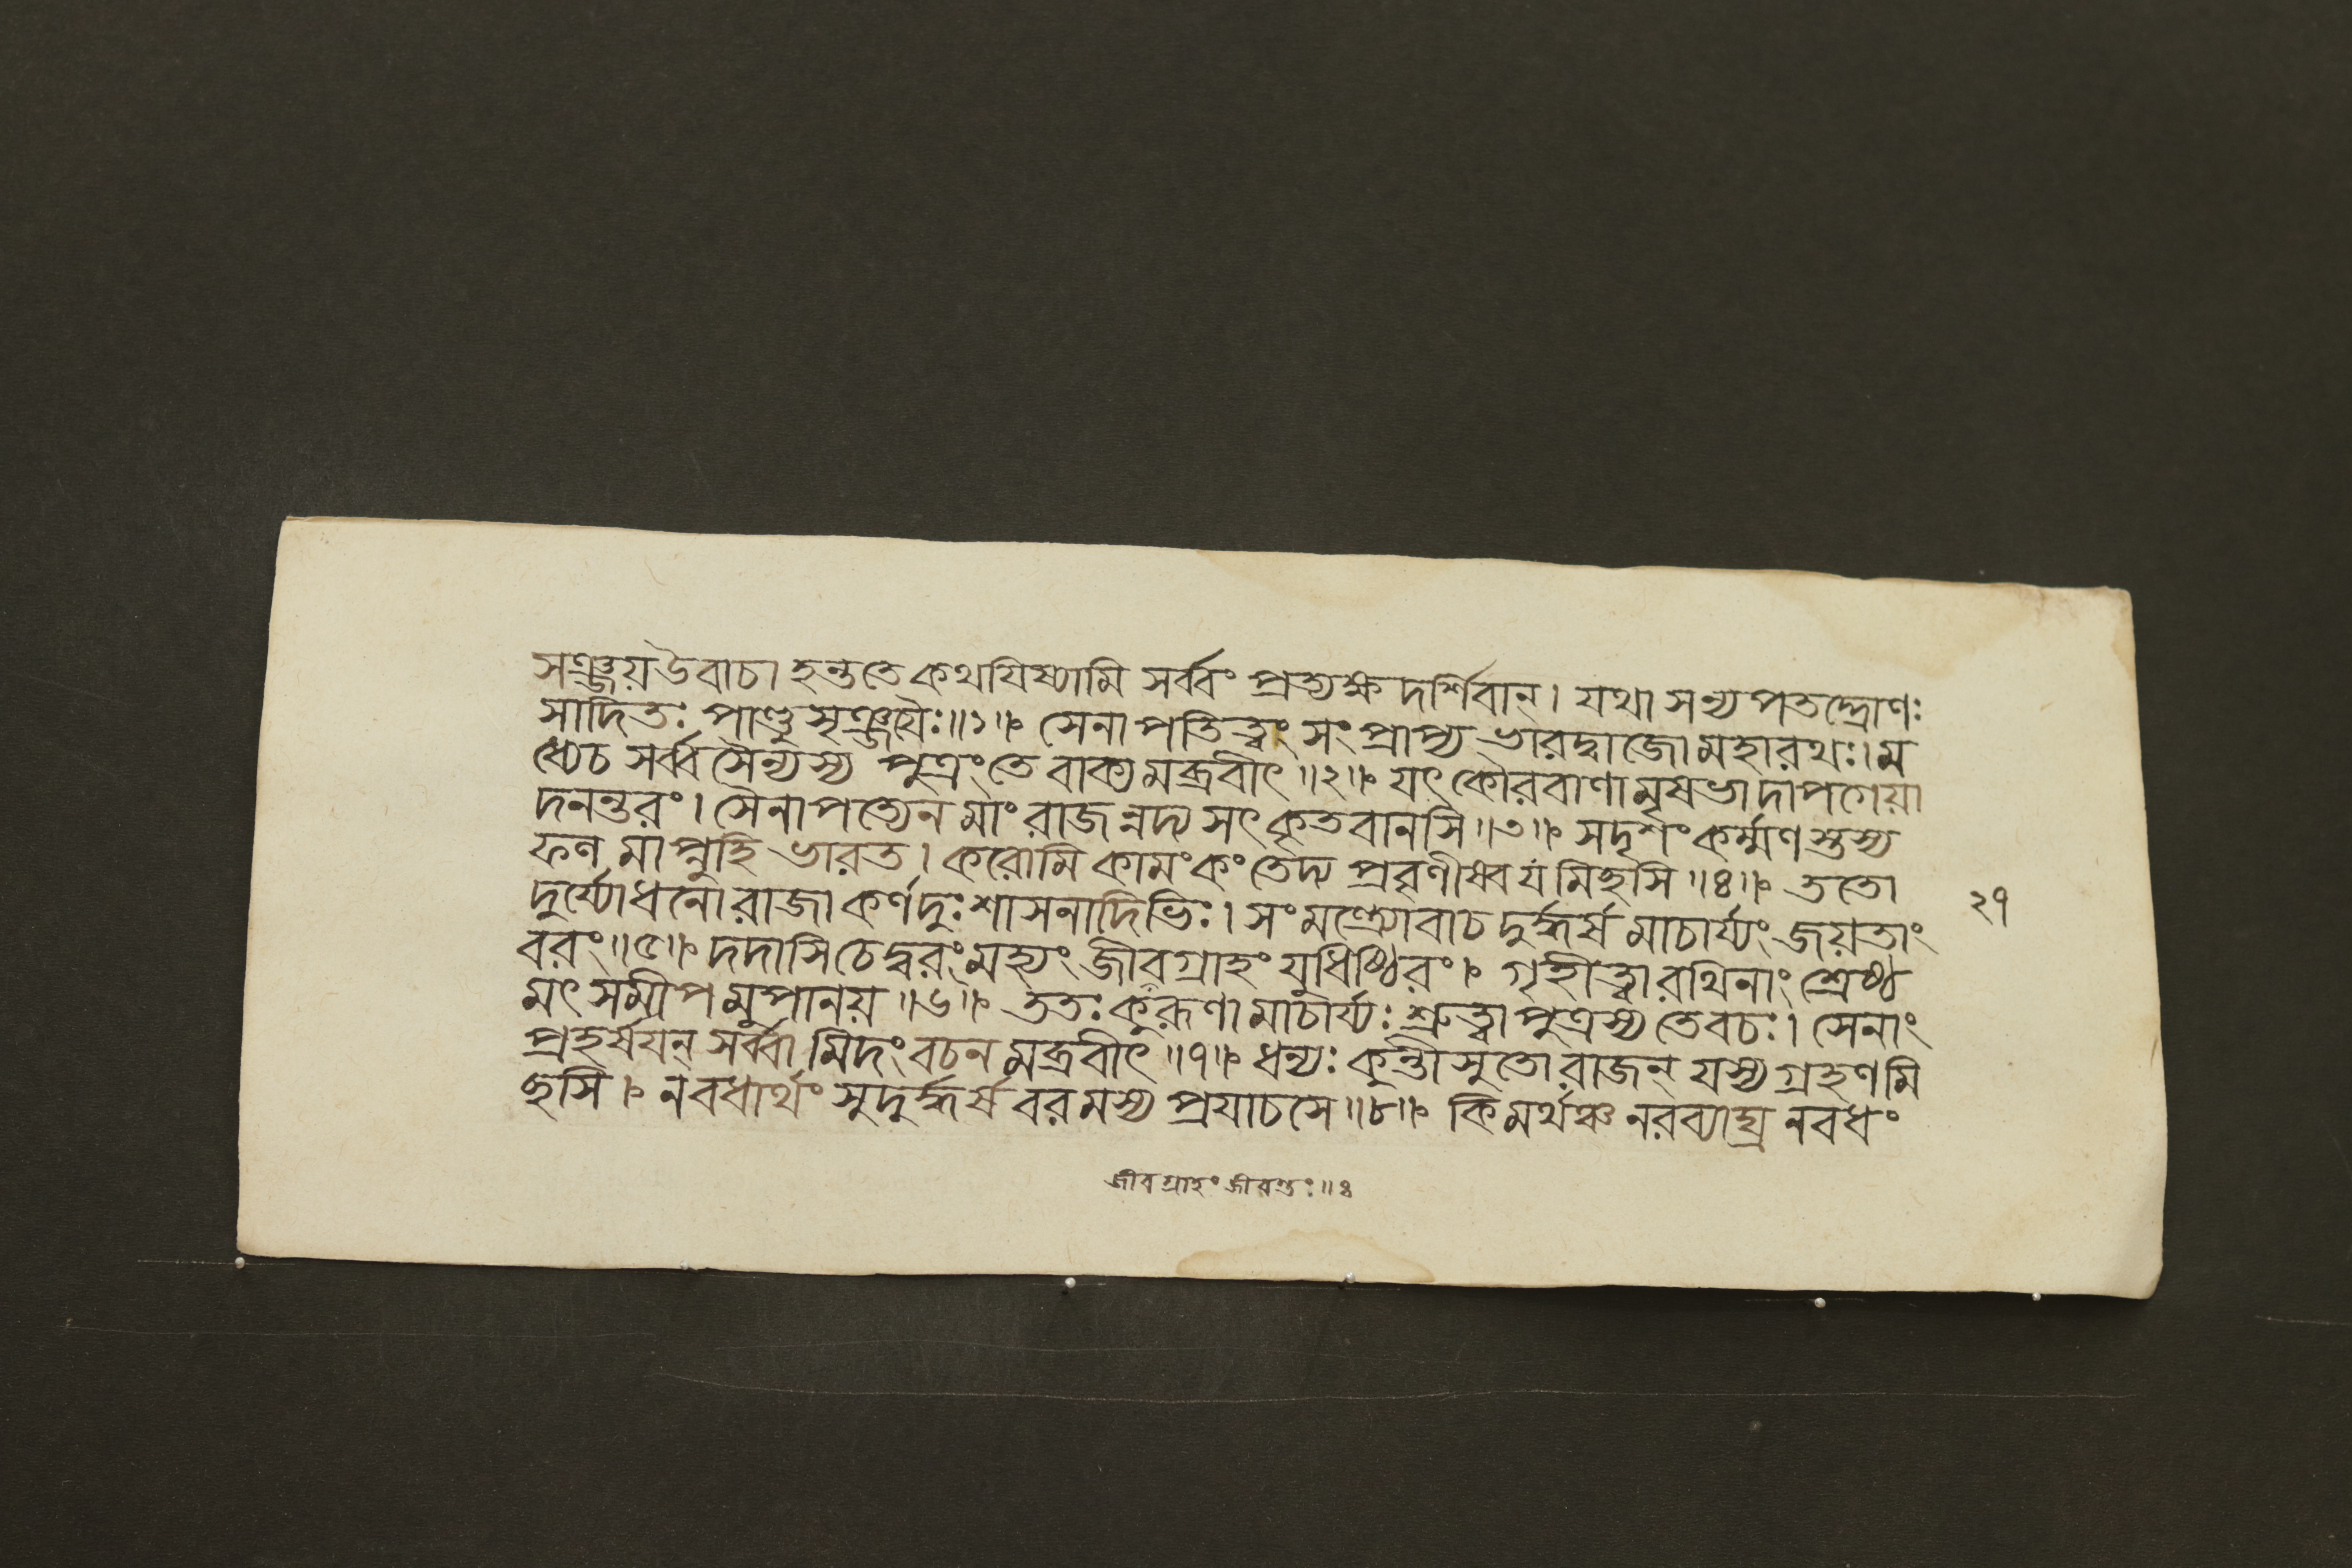 সঞ্জয়উবাচ। হন্ততে কথযিষ্যামি সর্ব্বং প্রত্যক্ষদর্শিবান্। যথা সন্যপতদ্দ্রোণঃ
সাদিতঃ পাণ্ডুসৃঞ্জয়ৈঃ॥১॥ঃ সেনাপতিত্বং সংপ্রাপ্য ভারদ্বাজো মহারথঃ। ম
ধ্যেচ সর্ব্বসৈন্যস্য পুত্রংতে বাক্যমব্রবীৎ॥২॥ঃ যৎকৌরবাণামৃষভাদাপগেয়া
দনন্তরং। সৈনাপত্যেন মাং রাজন্নদ্য সৎকৃতবানসি॥৩॥ঃ সদৃশং কর্ম্মণস্তস্য
ফলমাপ্নুহি ভারত। করোমি কামং কং তেদ্য প্রবৃণীষ্বযমিছসি॥৪॥ঃ ততো
দুর্য্যোধনো রাজা কর্ণদুঃশাসনাদিভিঃ। সংমন্ত্র্যোবাচ দুর্দ্ধর্ষমাচার্য্যং জয়তাং
২৭
বরং॥৫॥ঃ দদাসি চেদ্বরং মহ্যং জীবগ্রাহং যুধিষ্ঠিরং।ঃ গৃহীত্বা রথিনাং শ্রেষ্ঠ
মৎসমীপমুপানয়॥৬॥ঃ ততঃ কুরূণামাচার্য্যঃ শ্রুত্বা পুত্রস্য তেবচঃ। সেনাং
প্রহর্ষযন্ সর্ব্বামিদং বচনমব্রবীৎ॥৭॥ঃ ধন্যঃ কুন্তীসুতো রাজন্ যস্য গ্রহণমি
ছসি।ঃ নবধার্থং সুদুর্দ্ধর্ষ বরমস্য প্রযাচসে॥৮॥ঃ কিমর্থঞ্চ নরব্যাঘ্র নবধং
জীবগ্রাহং জীবন্তং॥৪